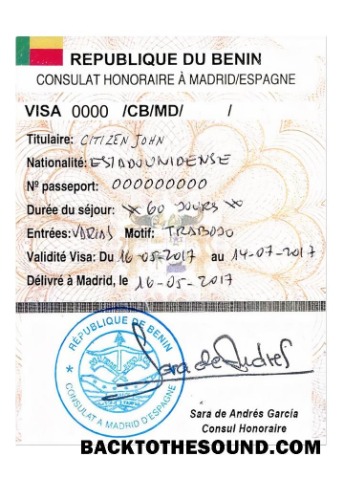 REPUBLIQUE DU BENIN
CONSULAT HONORAIRE À MADRID/ESPAGNE
VISA 0000 /CB/MD/ /
Titulaire: CITIZEN JOHN
Nationalité: ESTADOUNIDENSE
Nº passeport: 000000000
Durée du séjour: * 60 JOURS *
Entrées: VARIAS Motif: TRABAJO
Validité Visa: Du 16-05-2017 au 14-07-2017
Délivré à Madrid, le 16-05-2017
RÉPUBLIQUE DE BENIN
CONSULAT A MADRID D'ESPAGNE
Sara de Andrés
Sara de Andrés García
Consul Honoraire
BACKTOTHESOUND.COM